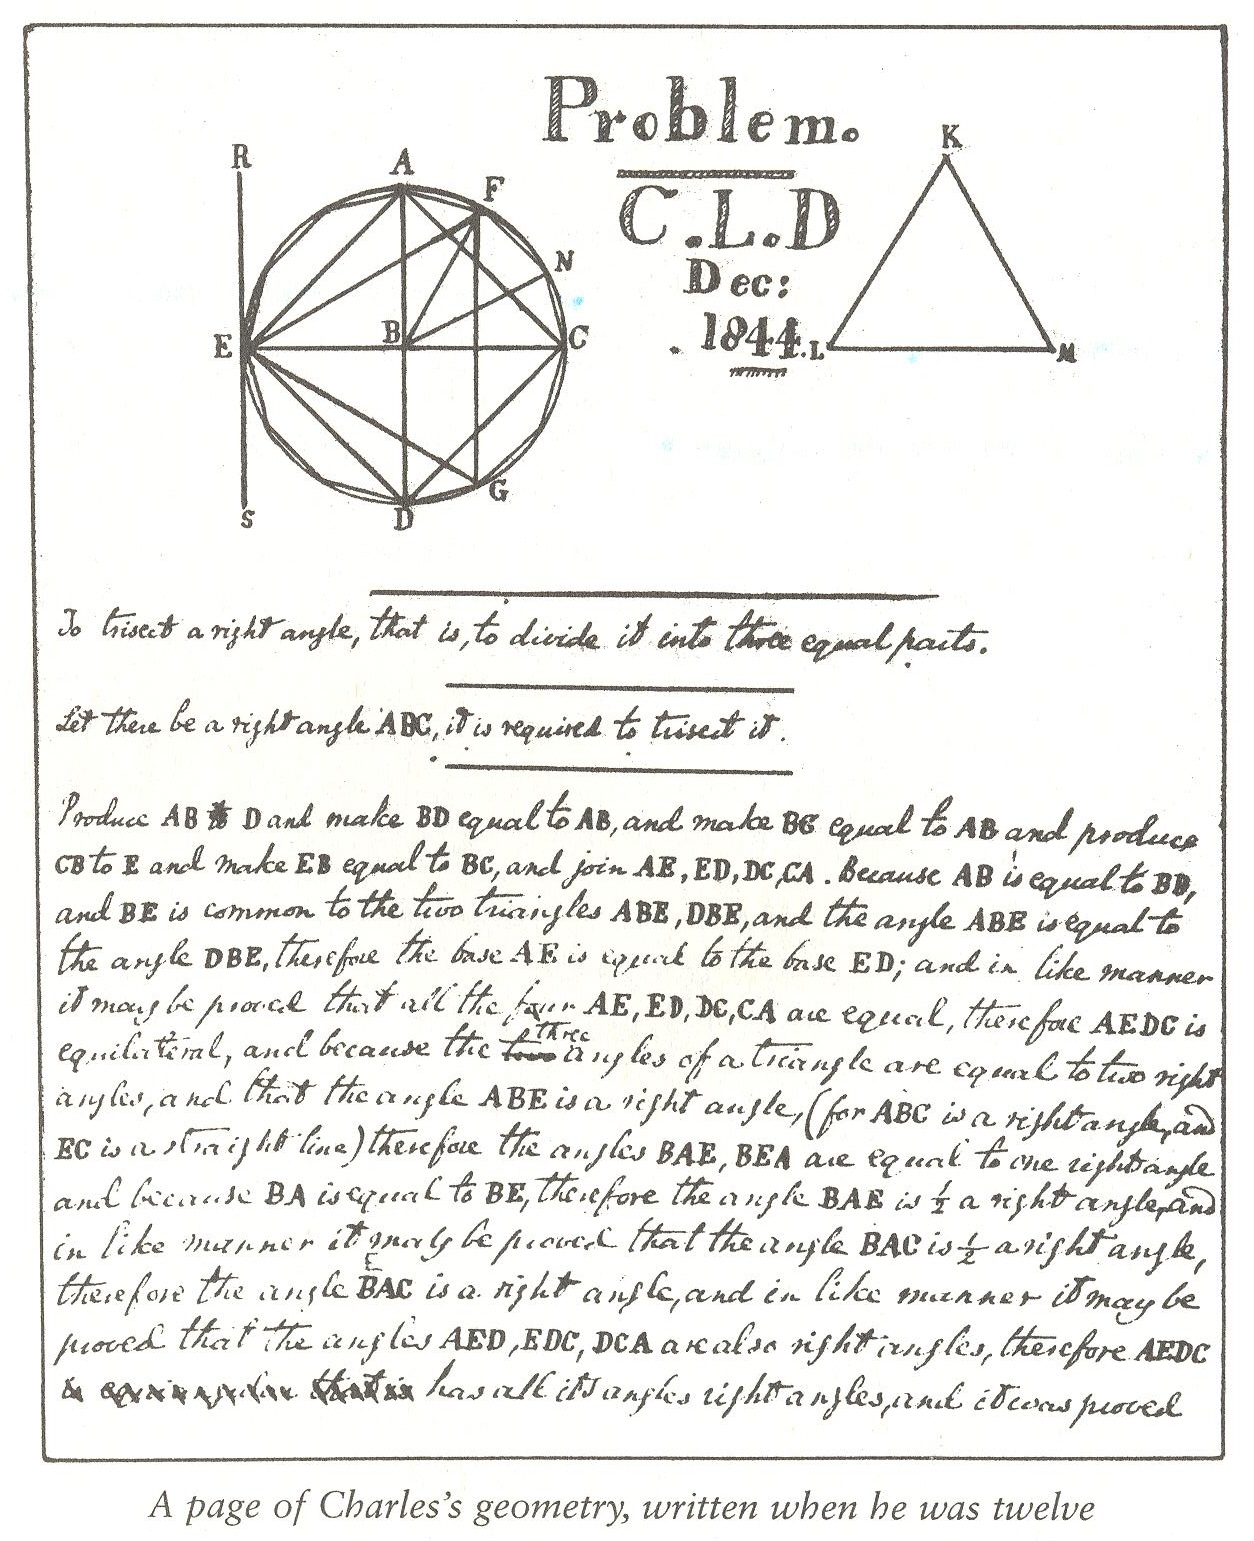 Problem.
C.L.D
Dec:
1844.
R
A
F
N
E
B
C
S
D
G
K
L
M
To trisect a right angle, that is, to divide it into three equal parts.
Let there be a right angle ABC, it is required to trisect it.
Produce AB D and make BD equal to AB, and make BC equal to AB and produce
CB to E and make EB equal to BC, and join AE, ED, DC, CA. Because AB is equal to BD,
and BE is common to the two triangles ABE, DBE, and the angle ABE is equal to
the angle DBE, therefore the base AE is equal to the base ED; and in like manner
it may be proved that all the four AE, ED, DC, CA are equal, therefore AEDC is
equilateral, and because the three angles of a triangle are equal to two right
angles, and that the angle ABE is a right angle, (for ABC is a right angle, and
EC is a straight line) therefore the angles BAE, BEA are equal to one right angle
and because BA is equal to BE, therefore the angle BAE is ½ a right angle, and
in like manner it may be proved that the angle BAC is ½ a right angle,
therefore the angle EAC is a right angle, and in like manner it may be
proved that the angles AED, EDC, DCA are also right angles, therefore AEDC
has all its angles right angles, and it was proved
A page of Charles's geometry, written when he was twelve